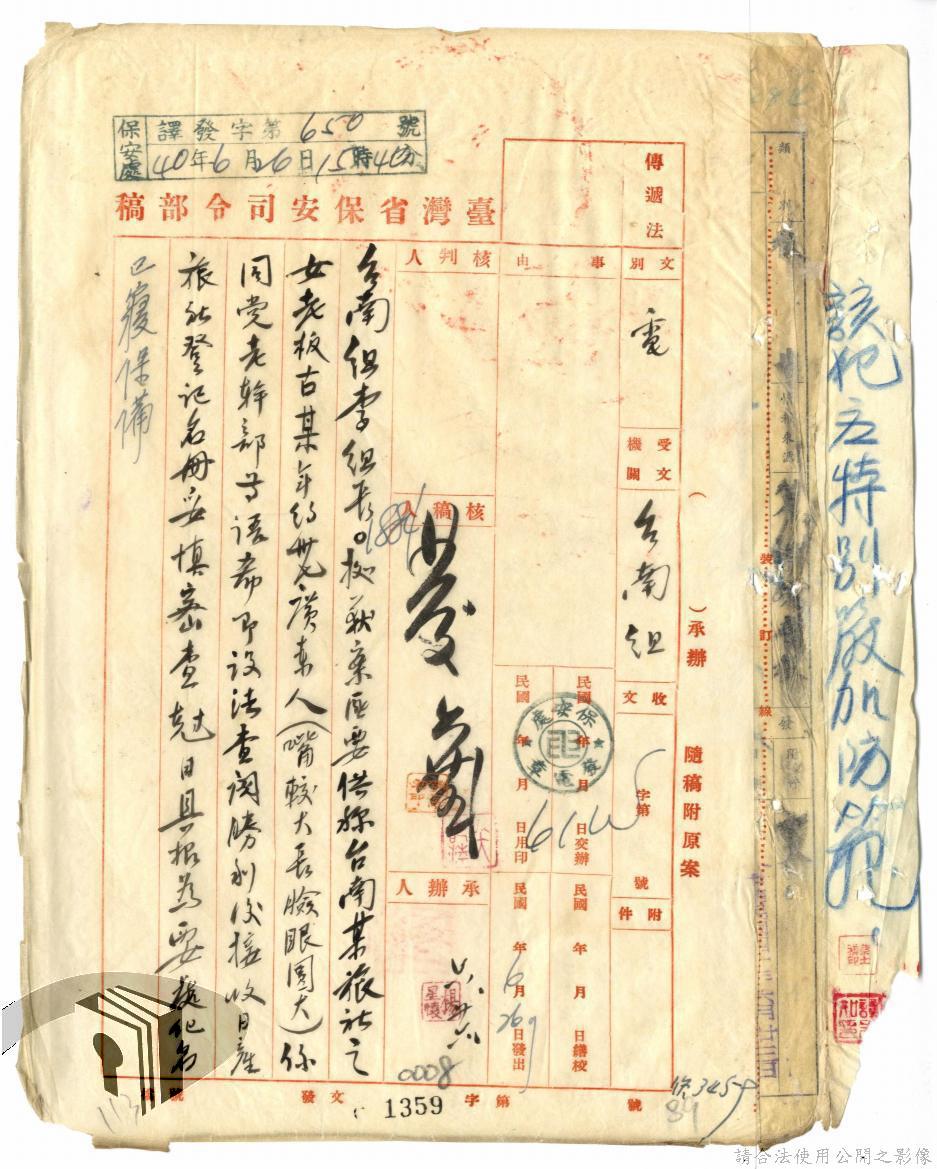 保安處
譯發字第650號
40年6月26日15時40分
臺灣省保安司令部稿
傳遞法
文別
電
事由
受文機關
台南組
(　　)承辦
隨稿附原案
收文
字第
號
附件
核判人
核稿人
承辦人
民國 年 月 日交辦
民國 年 月 日用印
民國 年 月 日繕校
民國 年 6月26日發出
保安處
台南組李組長。1884
女老板古某年約卅九廣東人(嘴較大長臉眼圓大)係
同党老幹部等語希即設法查閱勝利後接收日產
旅社登記名冊妥慎密查尅日具報為要
已覆保備
該犯應特別嚴加防範
裝訂線
類別
0008
發文
字第
1359
號
113
84
請合法使用公開之影像